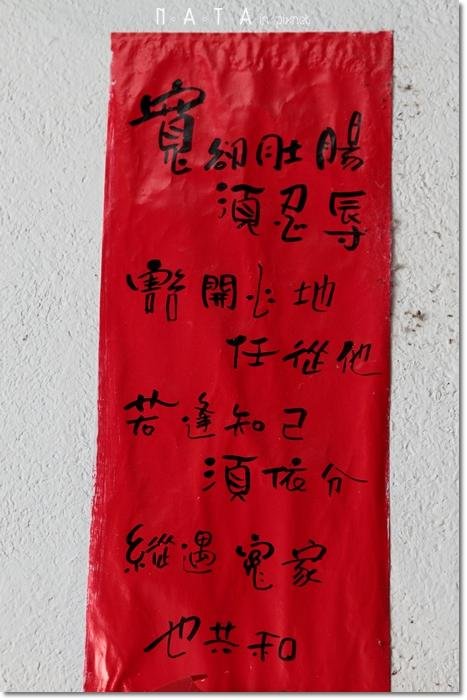 NATA in pixnet
寬卻肚腸
須忍辱
豁開心地
任從他
若逢知己
須依分
縱遇冤家
也共和